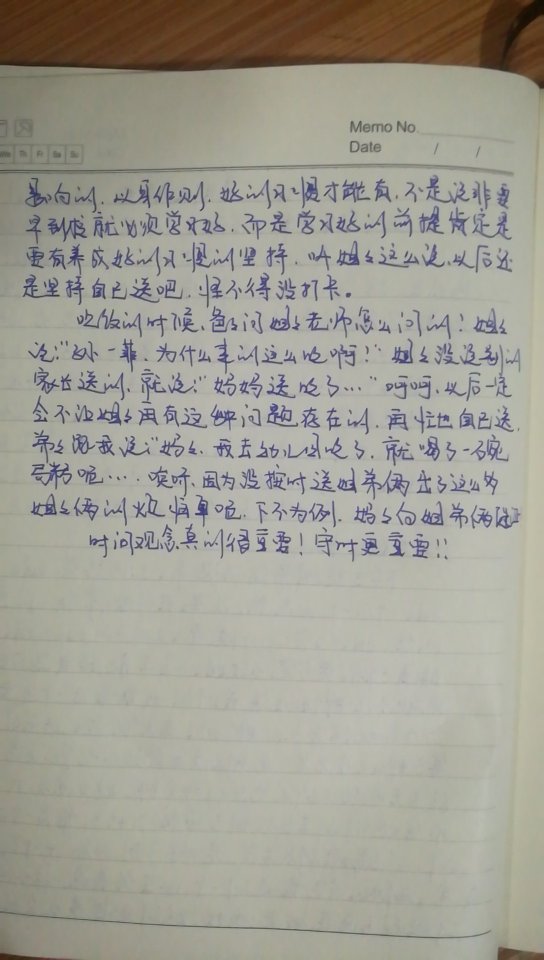 Memo No.
Date / /
We Th Fr Sa Su
影响的，以身作则，好的习惯才能有，不是说非要
早到校就必须学习好，而是学习好的前提肯定是
要有养成好的习惯的坚持，听姐姐这么说，以后还
是坚持自己送吧，怪不得没打卡。
吃饭的时候，爸爸问姐姐老师怎么问的！姐姐
说：“，为什么来的这么晚啊！”姐姐没说别的
家长送的，就说：“妈妈送晚了…”呵呵，以后一定
会不让姐姐再有这种问题存在的，再忙也自己送，
弟弟跟我说：“妈妈，我去幼儿园晚了，就喝了一碗
唉呀，因为没按时送姐弟俩出了这么多
姐弟俩的烦恼事呢，下不为例，妈妈向姐弟俩保证
时间观念真的很重要！守时更重要！！